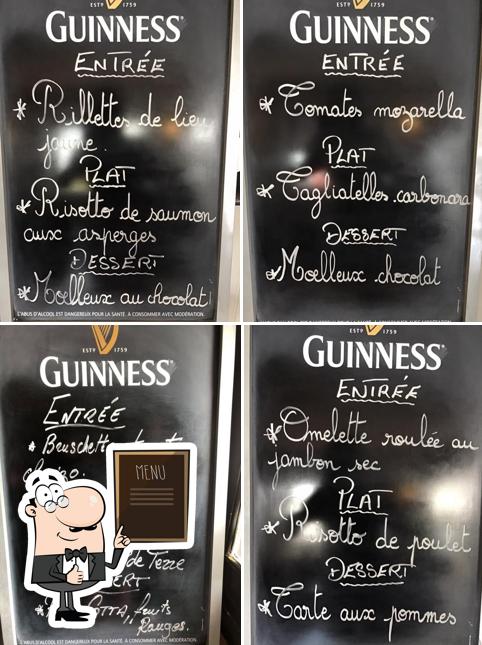 ESTD 1759
GUINNESS
ENTRÉE
* Rillettes de lieu
jaune.
PLAT
* Risotto de saumon
aux asperges
DESSERT
* Moelleux au chocolat
L'ABUS D'ALCOOL EST DANGEREUX POUR LA SANTÉ. À CONSOMMER AVEC MODÉRATION.
ESTD 1759
GUINNESS
ENTRÉE
* Tomates mozarella
PLAT
* Tagliatelles carbonara
DESSERT
* Moelleux chocolat
ESTD 1759
GUINNESS
ENTRÉE
*
MENU
de Terre
fruits
Rouges.
L'ABUS D'ALCOOL EST DANGEREUX POUR LA SANTÉ. À CONSOMMER AVEC MODÉRATION.
ESTD 1759
GUINNESS
ENTRÉE
* Omelette roulée au
jambon sec
PLAT
* Risotto de poulet
DESSERT
* Tarte aux pommes